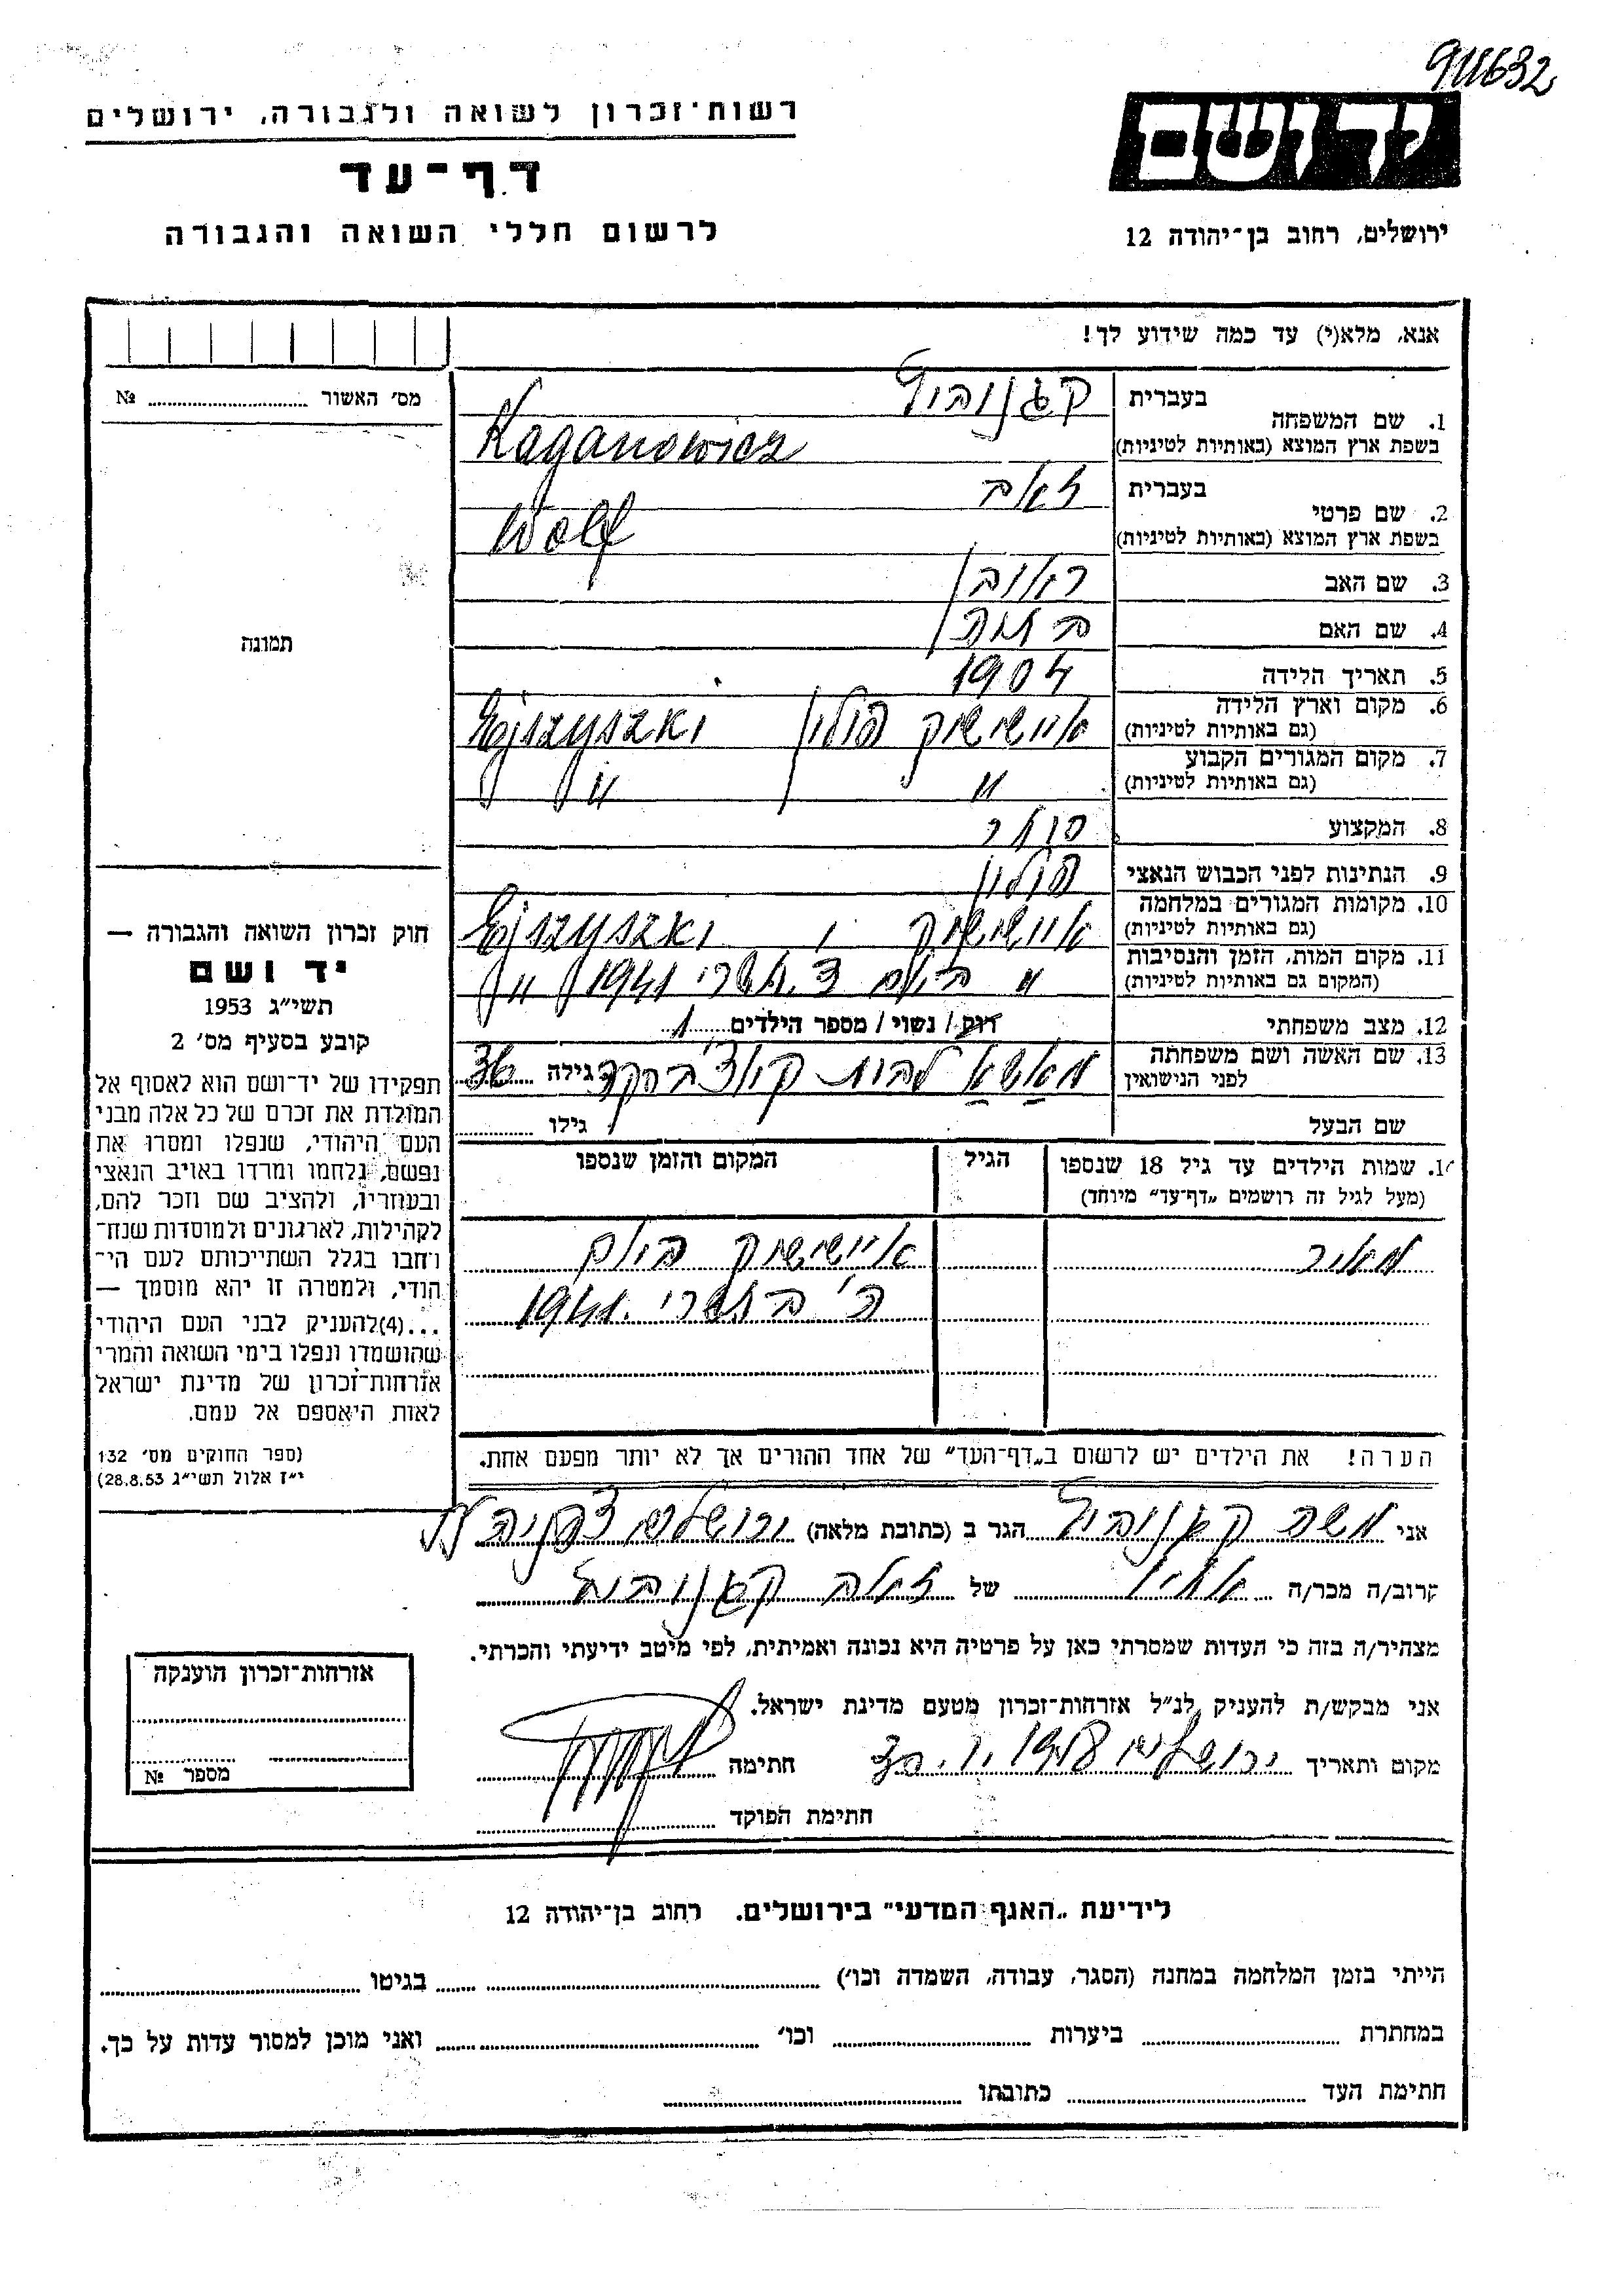 911632
רשות־זכרון לשואה ולגבורה, ירושלים
דף־עד
לרשום חללי השואה והגבורה
יד ושם
ירושלים, רחוב בן־יהודה 12
אנא, מלא(י) עד כמה שידוע לך!
מס׳ האשור № 
תמונה
חוק זכרון השואה והגבורה —
יד ושם
תשי״ג 1953
קובע בסעיף מס׳ 2
תפקידו של יד־ושם הוא לאסוף אל
המולדת את זכרם של כל אלה מבני
העם היהודי, שנפלו ומסרו את
נפשם, נלחמו ומרדו באויב הנאצי
ובעוזריו, ולהציב שם וזכר להם,
לקהילות, לארגונים ולמוסדות שנח־
רחבו בגלל השתייכותם לעם הי־
הודי, ולמטרה זו יהא מוסמך —
...(4)להעניק לבני העם היהודי
שהושמדו ונפלו בימי השואה והמרי
אזרחות־זכרון של מדינת ישראל
לאות היאספם אל עמם.
(ספר החוקים מס׳ 132
י״ז אלול תשי״ג 28.8.53)
1. שם המשפחה בעברית קגנוביץ
בשפת ארץ המוצא (באותיות לטיניות) Kaganowicz
2. שם פרטי בעברית זאב
בשפת ארץ המוצא (באותיות לטיניות) Wolf
3. שם האב ראובן
4. שם האם
5. תאריך הלידה 1904
6. מקום וארץ הלידה (גם באותיות לטיניות) איישישוק פולין Ejszyszki
7. מקום המגורים הקבוע (גם באותיות לטיניות) " "
8. המקצוע סוחר
9. הנתינות לפני הכבוש הנאצי פולין
10. מקומות המגורים במלחמה (גם באותיות לטיניות) איישישוק, Ejszyszki
11. מקום המות, הזמן והנסיבות (המקום גם באותיות לטיניות) " ביום תשרי 1941 "
12. מצב משפחתי רוק / נשוי / מספר הילדים 1
13. שם האשה ושם משפחתה לפני הנישואין מאשא לבית גילה 36
שם הבעל גילו
14. שמות הילדים עד גיל 18 שנספו (מעל לגיל זה רושמים „דף־עד״ מיוחד) הגיל המקום והזמן שנספו
מאיר איישישוק ביום
ה׳ בתשרי 1941.
הערה! את הילדים יש לרשום ב„דף־העד״ של אחד ההורים אך לא יותר מפעם אחת.
אני משה קגנוביץ הגר ב (כתובת מלאה) ירושלים
קרוב/ה מכר/ה אחיו של זאב קגנוביץ
מצהיר/ה בזה כי העדות שמסרתי כאן על פרטיה היא נכונה ואמיתית, לפי מיטב ידיעתי והכרתי.
אני מבקש/ת להעניק לנ״ל אזרחות־זכרון מטעם מדינת ישראל.
מקום ותאריך ירושלים חתימה
חתימת הפוקד
אזרחות־זכרון הוענקה
מספר №
לידיעת „האגף המדעי״ בירושלים. רחוב בן־יהודה 12
הייתי בזמן המלחמה במחנה (הסגר, עבודה, השמדה וכו׳) בגיטו
במחתרת ביערות וכו׳ ואני מוכן למסור עדות על כך.
חתימת העד כתובתו